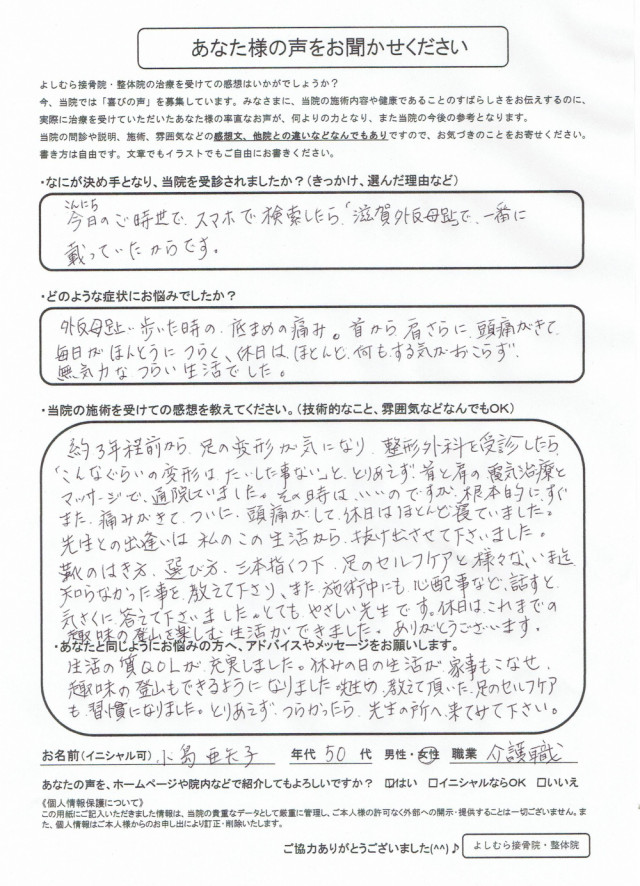 あなた様の声をお聞かせください
よしむら接骨院・整体院の治療を受けての感想はいかがでしょうか？
今、当院では「喜びの声」を募集しています。みなさまに、当院の施術内容や健康であることのすばらしさをお伝えするのに、
実際に治療を受けていただいたあなた様の率直なお声が、何よりの力となり、また当院の今後の参考となります。
当院の問診や説明、施術、雰囲気などの感想文、他院との違いなどなんでもありですので、お気づきのことをお寄せください。
書き方は自由です。文章でもイラストでもご自由にお書きください。
・なにが決め手となり、当院を受診されましたか？（きっかけ、選んだ理由など）
こんにち
今日のご時世で、スマホで検索したら、「滋賀外反母趾」で、一番に
載っていたからです。
・どのような症状にお悩みでしたか？
外反母趾、歩いた時の、底まめの痛み。首から肩さらに、頭痛がきて、
毎日がほんとうにつらく、休日は、ほとんど、何もする気がおこらず、
無気力なつらい生活でした。
・当院の施術を受けての感想を教えてください。（技術的なこと、雰囲気などなんでもOK）
約3年程前から、足の変形が気になり、整形外科を受診したら、
「こんなぐらいの変形は、たいした事ない」と、とりあえず、首と肩の電気治療と
マッサージで、通院していました。その時は、いいのですが、根本的に、すぐ
また、痛みがきて、ついに、頭痛がして、休日はほとんど寝ていました。
先生との出逢いは、私のこの生活から、抜け出させて下さいました。
靴のはき方、選び方、三本指くつ下、足のセルフケアと様々な、いま迄
知らなかった事を、教えて下さり、また、施術中にも、心配事など、話すと、
気さくに、答えて下さいました。とても、やさしい先生です。休日は、これまでの
趣味の登山を楽しむ生活ができました。ありがとうございます。
・あなたと同じようにお悩みの方へ、アドバイスやメッセージをお願いします。
生活の質QOLが、充実しました。休みの日の生活が、家事もこなせ、
趣味の登山もできるようになりました。先生の、教えて頂いた、足のセルフケア
も、習慣になりました。とりあえず、つらかったら、先生の所へ、来てみて下さい。
お名前（イニシャル可） 小島 亜矢子 年代 50 代 男性・女性 職業 介護職
あなたの声を、ホームページや院内などで紹介してもよろしいですか？ ☑はい □イニシャルならOK □いいえ
《個人情報保護について》
この用紙にご記入いただきました情報は、当院の貴重なデータとして厳重に管理し、ご本人様の許可なく外部への開示・提供することは一切ございません。ま
た、個人情報はご本人様からのお申し出により訂正・削除いたします。
ご協力ありがとうございました(^^)♪ よしむら接骨院・整体院